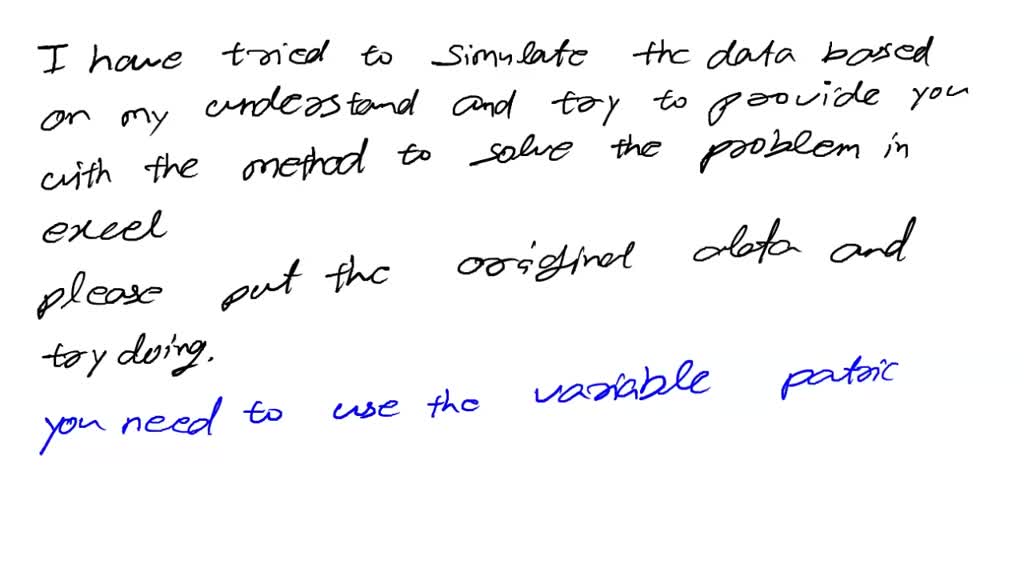 I have tried to simulate the data based
on my understand and try to provide you
with the method to solve the problem in
excel
please put the original data and
try doing.
you need to use the variable patric